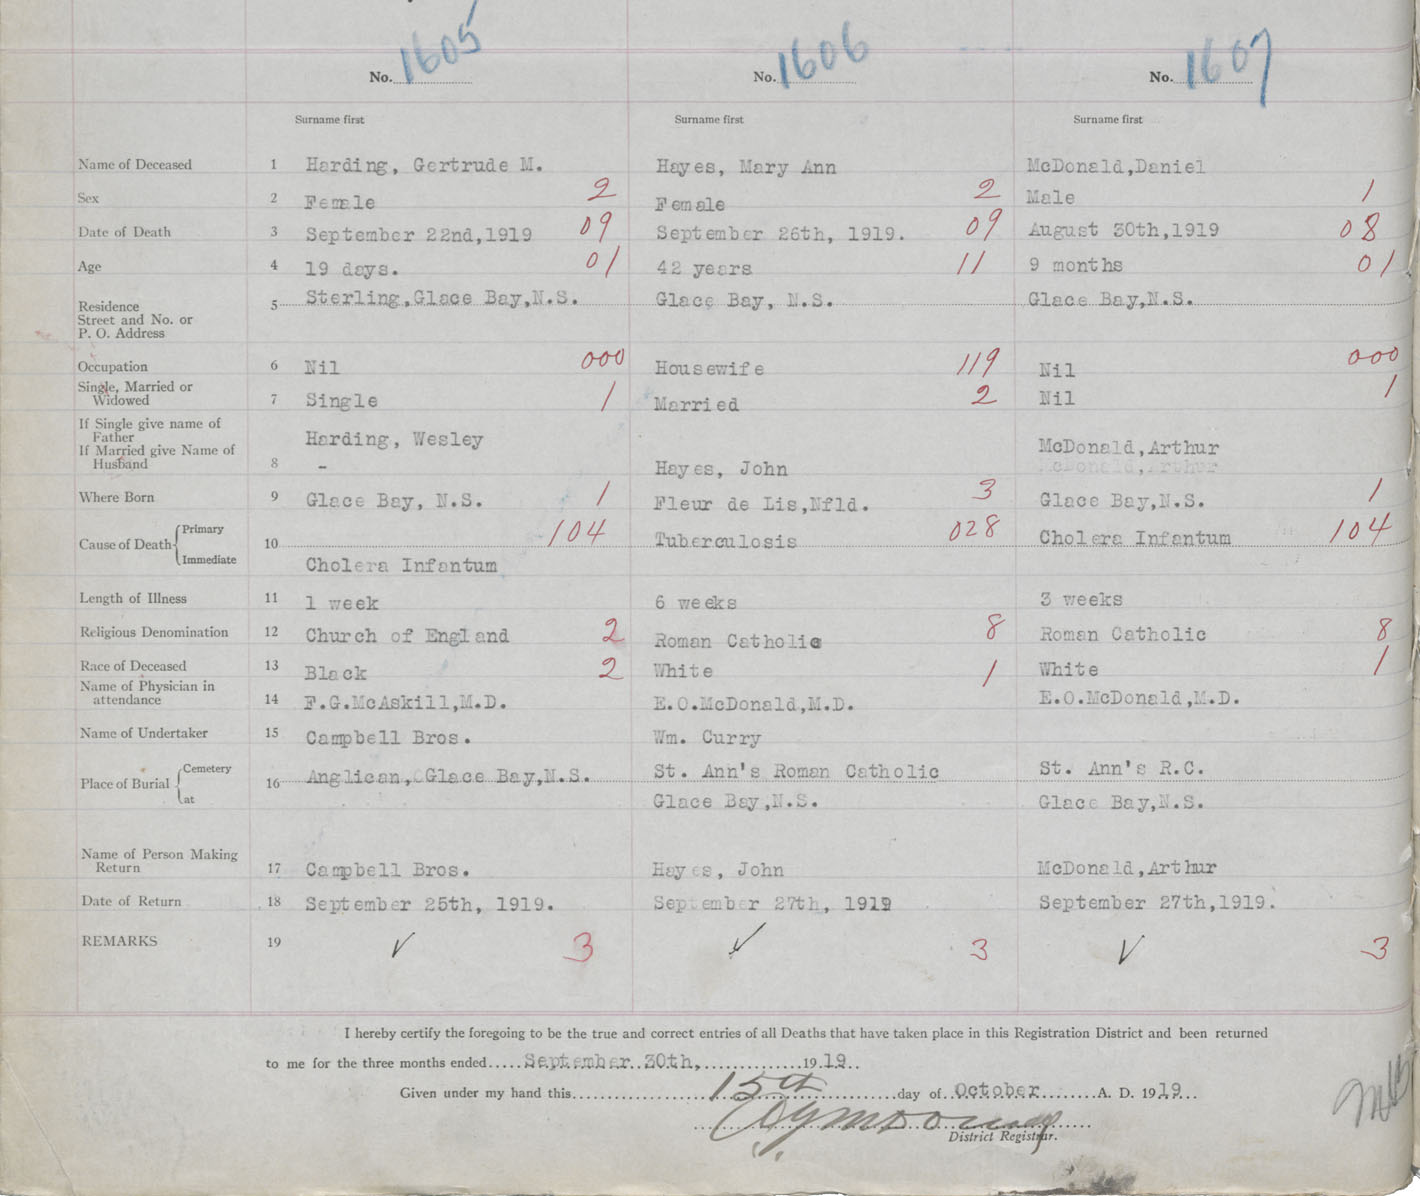 No. 1605 No. 1606 No. 1607
Surname first Surname first Surname first
Name of Deceased 1 Harding, Gertrude M. Hayes, Mary Ann McDonald,Daniel
Sex 2 Female 2 Female 2 Male 1
Date of Death 3 September 22nd,1919 09 September 26th, 1919. 09 August 30th,1919 08
Age 4 19 days. 01 42 years 11 9 months 01
Residence
Street and No. or
P. O. Address
5 Sterling,Glace Bay,N.S. Glace Bay, N.S. Glace Bay,N.S.
Occupation 6 Nil 000 Housewife 119 Nil 000
Single, Married or
Widowed 7 Single 1 Married 2 Nil 1
If Single give name of
Father
Harding, Wesley McDonald,Arthur
If Married give Name of
Husband 8 - Hayes, John McDonald,Arthur
Where Born 9 Glace Bay, N.S. 1 Fleur de Lis,Nfld. 3 Glace Bay,N.S. 1
Cause of Death Primary
Immediate
10 104 Tuberculosis 028 Cholera Infantum 104
Cholera Infantum
Length of Illness 11 1 week 6 weeks 3 weeks
Religious Denomination 12 Church of England 2 Roman Catholic 8 Roman Catholic 8
Race of Deceased 13 Black 2 White 1 White 1
Name of Physician in
attendance 14 F.G.McAskill,M.D. E.O.McDonald,M.D. E.O.McDonald,M.D.
Name of Undertaker 15 Campbell Bros. Wm. Curry
Place of Burial Cemetery
at
16 Anglican, Glace Bay,N.S. St. Ann's Roman Catholic St. Ann's R.C.
Glace Bay,N.S. Glace Bay,N.S.
Name of Person Making
Return 17 Campbell Bros. Hayes, John McDonald,Arthur
Date of Return 18 September 25th, 1919. September 27th, 1919 September 27th,1919.
REMARKS 19 3 3 3
I hereby certify the foregoing to be the true and correct entries of all Deaths that have taken place in this Registration District and been returned
to me for the three months ended September 30th, 1919
Given under my hand this 15th day of October A. D. 1919
District Registrar.